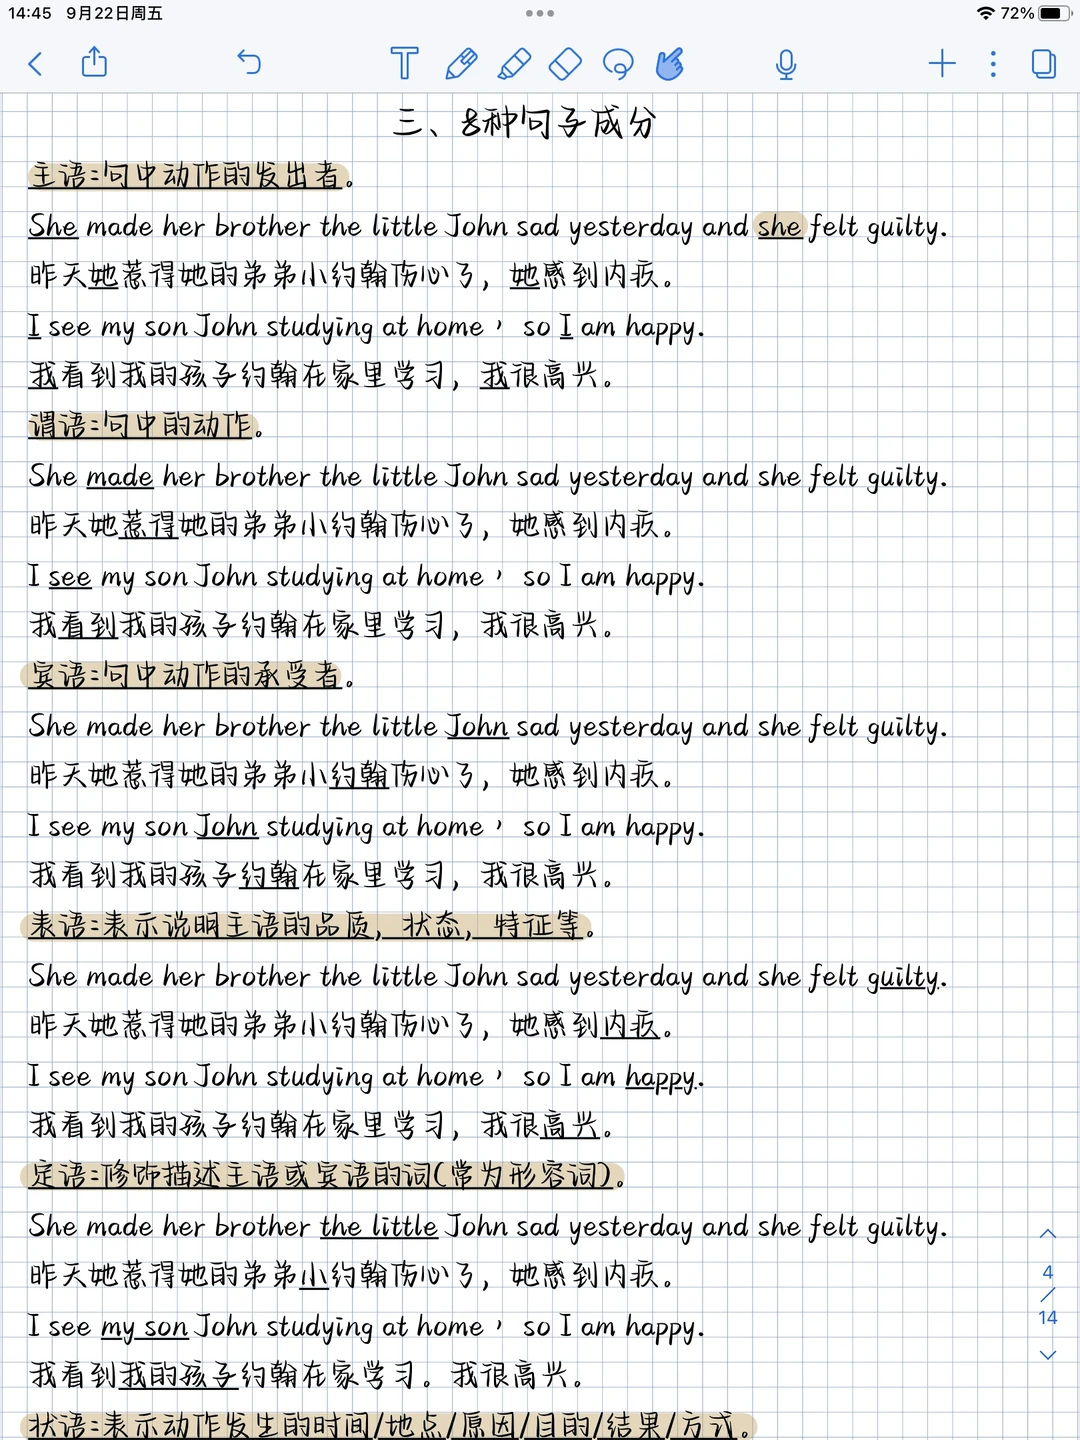 14:45 9月22日周五
72%
三、8种句子成分
主语:句中动作的发出者。
She made her brother the little John sad yesterday and she felt guilty.
昨天她惹得她的弟弟小约翰伤心了，她感到内疚。
I see my son John studying at home， so I am happy.
我看到我的孩子约翰在家里学习，我很高兴。
谓语:句中的动作。
She made her brother the little John sad yesterday and she felt guilty.
昨天她惹得她的弟弟小约翰伤心了，她感到内疚。
I see my son John studying at home， so I am happy.
我看到我的孩子约翰在家里学习，我很高兴。
宾语:句中动作的承受者。
She made her brother the little John sad yesterday and she felt guilty.
昨天她惹得她的弟弟小约翰伤心了，她感到内疚。
I see my son John studying at home， so I am happy.
我看到我的孩子约翰在家里学习，我很高兴。
表语:表示说明主语的品质，状态，特征等。
She made her brother the little John sad yesterday and she felt guilty.
昨天她惹得她的弟弟小约翰伤心了，她感到内疚。
I see my son John studying at home， so I am happy.
我看到我的孩子约翰在家里学习，我很高兴。
定语:修饰描述主语或宾语的词(常为形容词)。
She made her brother the little John sad yesterday and she felt guilty.
昨天她惹得她的弟弟小约翰伤心了，她感到内疚。
I see my son John studying at home， so I am happy.
我看到我的孩子约翰在家学习。我很高兴。
状语:表示动作发生的时间/地点/原因/目的/结果/方式。
4
/
14